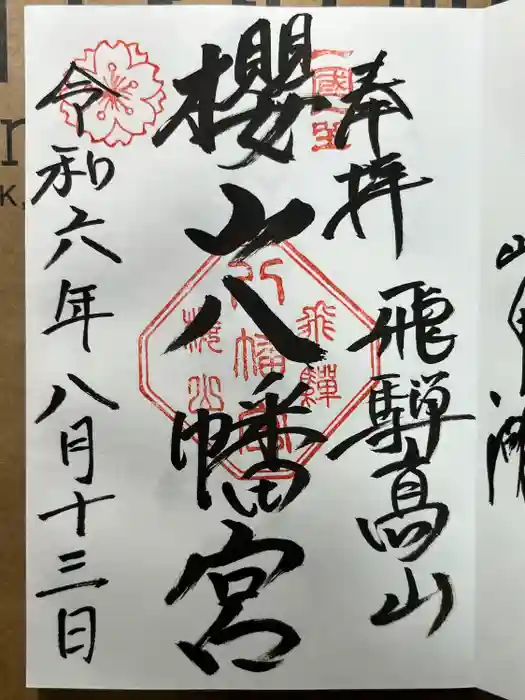 奉拝
飛騨高山
櫻山八幡宮
令和六年八月十三日
飛騨
八幡宮
櫻山